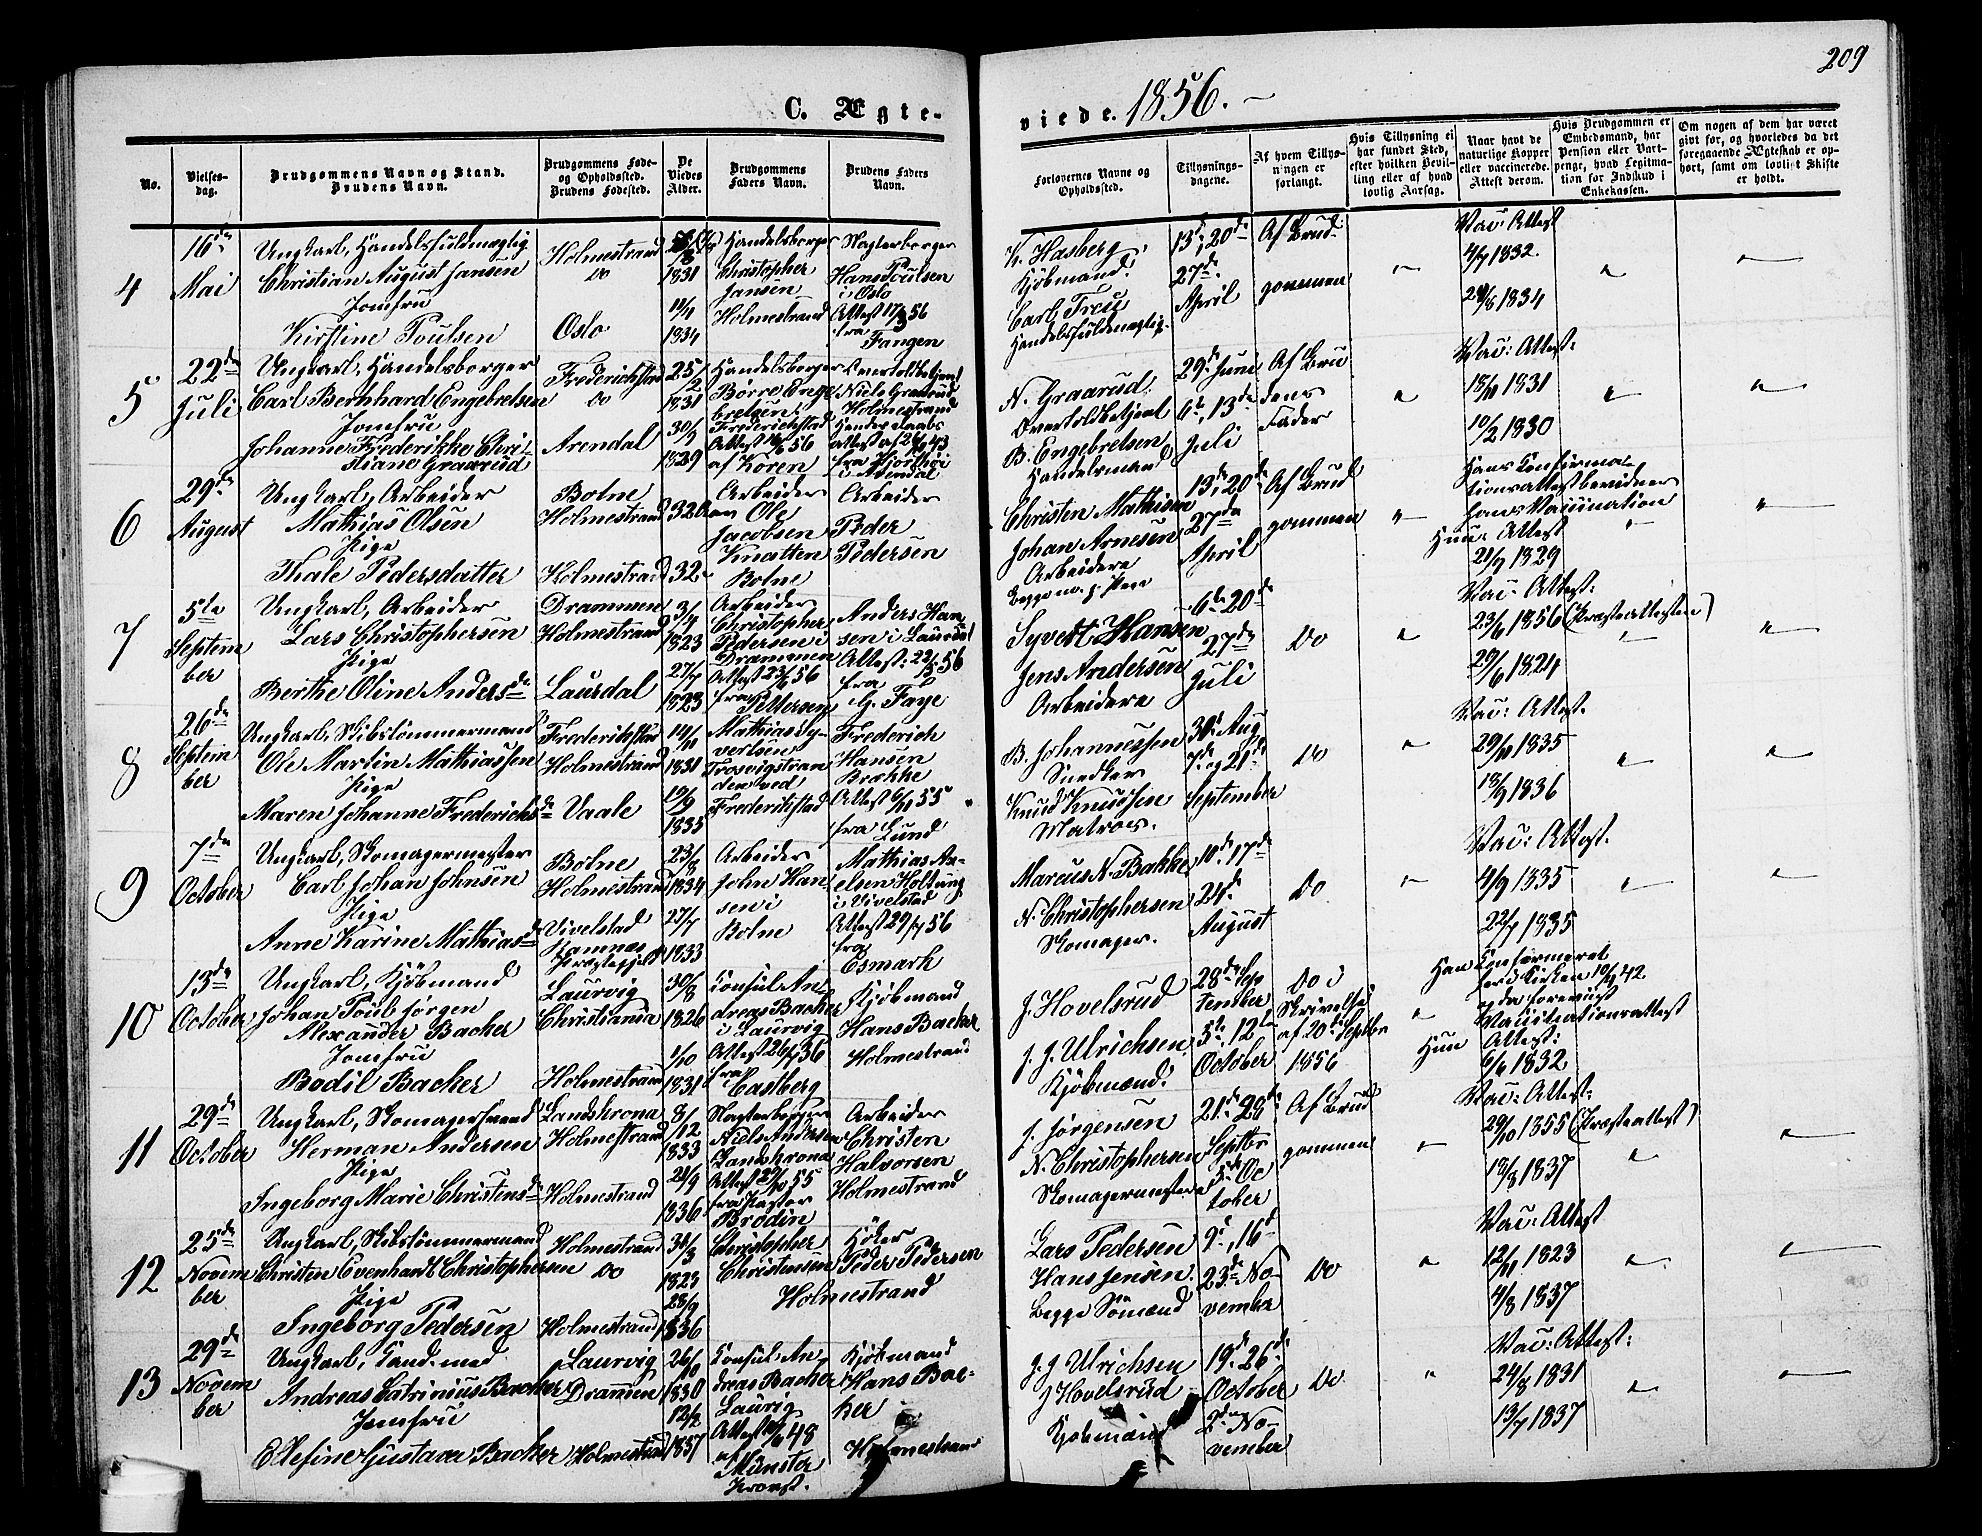 209
C. Ægte-
viede. 1856.
No.
Vielses-
dag.
Brudgommens Navn og Stand.
Brudens Navn.
Brudgommens Føde-
og Opholdssted.
Brudens Fødested.
De
Viedes
Alder.
Brudgommens
Faders Navn.
Brudens Faders
Navn.
Forlovernes Navne og
Opholdssted.
Tillysnings-
dagene.
Af hvem Tillys-
ningen er
forlangt.
Hvis Tillysning ei
har fundet Sted,
efter hvilken Bevil-
ling eller af hvad
lovlig Aarsag.
Naar havt de
naturlige Kopper
eller vaccinerede.
Attest derom.
Hvis Brudgommen er
Embedsmand, har
Pension eller Vart-
penge, hvad Legitima-
tion for Indskud i
Enkekassen.
Om nogen af dem har været
gift før, og hvorledes da det
foregaaende Ægteskab er op-
hørt, samt om lovligt Skifte
er holdt.
4
16de
Mai
Ungkarl, Handelsfuldmægtig
Christian August Jansen
Jomfru
Kirstine Poulsen
Holmestrand
do
Oslo
1831
11/1
1834
Handelsborger
Christopher
Jansen
Holmestrand
Slagterborger
Hans Poulsen
i Oslo
Attest 17/3 56
fra
Fangen
K. Hasberg,
Kjøbmand.
Carl Freu
Handelsfuldmægtig.
13de, 20de
27de
April
Af Brud-
gommen
Vac: Attest
4/7 1832.
24/8 1834
5
22de
Juli
Ungkarl, Handelsborger
Carl Bernhard Engebretsen
Jomfru
Johanne Frederikke Chri-
stiane Graarud
Frederichstad
do
Arendal
25/2
1831
30/9
1829
Handelsborger
Børre Enge
bretsen
Frederichstad
af Koren
Overtoldbetjent
Niels Graarud
Holmestrand
N. Graarud
Overtoldbetjent
B. Engebretsen
Handelsmand
29de Juni
6te, 13de
Juli
Af Bru
dens
Fader
Vac: Attest:
18/11 1831
10/2 1830
6
29de
August
Ungkarl, Arbeider
Mathias Olsen
Pige
Thale Pedersdatter
Botne
Holmestrand
Holmestrand
32 Aar
32
Arbeider
Ole
Jacobsen
Knatten
Botne
Arbeider
Peder
Pedersen
Christen Mathisen
Johan Arnesen
Arbeidere
13de, 20de
27de
April
Af Brud
gommen
Hans Confirma-
tionsattest bevidner
hans Vaccination
Hun: Attest
21/7 1829
7
5te
Septem
ber
Ungkarl, Arbeider
Lars Christophersen
Pige
Berthe Oline Andersd.
Drammen
Holmestrand
Laurdal
3/4
1823
27/7
1823
Arbeider
Christopher
Pedersen i
Drammen
Attest 23/6 56
fra
Pettersen
Anders Han
sen i Laurdal
Attest: 22/5 56
fra
G. Faye
Syvert Hansen
Jens Andersen
Arbeidere
6te 20de
27de
Juli
Do
Vac: Attest:
23/6 1856 (Præsteattesten)
29/6 1824
8
26de
Septem
ber
Ungkarl, Skibstømmermand
Ole Martin Mathiassen
Pige
Maren Johanne Frederichsd.
Frederichstad
Holmestrand
Vaale
14/11
1831
19/9
1835
Mathias Sy-
vertsen
Trosvigstran
den ved
Frederichstad
Frederich
Hansen
Brække
Attest 6/11 55
fra
Lund
B. Johannessen
Snedker
Knud Knudsen
Matros.
30te Aug
7de og 21de
September
Do
Vac: Attest.
29/10 1835
13/9 1836
9
7de
October
Ungkarl, Skomagermester
Carl Johan Johnsen
Pige
Anne Karine Mathiasd.
Botne
Holmestrand
Vivelstad
Ramnes
Præstegjeld
23/8
1834
27/7
1833
Arbeider
John Han
sen i
Botne
Mathias An-
elsen Holtung
i Vivelstad
Attest 29/7 56
fra
Esmark
Marcus N. Bakke
N. Christophersen
Skomager.
10de, 17de
24de
August
Do
Vac: Attest.
4/9 1835
22/7 1835
10
13de
October
Ungkarl, Kjøbmand
Johan Poul Jørgen
Alexander Backer
Jomfru
Bodil Backer
Laurvig
Christiania
Holmestrand
30/8
1826
1/10
1831
Consul An-
dreas Backer
i Laurvig
Attest 26/7 36
fra
Castberg
Kjøbmand
Hans Backer
Holmestrand
J. Hovelsrud
J. J. Ulrichsen
Kjøbmænd.
28de Sep
tember
5te, 12te
October
Do i
Skrivelse
af 20de Septbr
1856
Han Confirmeret
her i Kirken 10/4 42
og da foreviist
Vaccinationsattest
Hun Attest:
6/6 1832
11
29de
October
Ungkarl, Skomagersvend
Herman Andersen
Pige
Ingeborg Marie Christensd.
Landskrona
Holmestrand
Holmestrand
8/12
1833
24/9
1836
Slagterborger
Niels Andersen
Landskrona
Attest 29/10 55
fra Pastor
Brodin
Arbeider
Christen
Halvorsen
Holmestrand
J. Jørgensen
N. Christophersen
Skomagermestere
21de, 28de
Septbr
5te Oc
tober
Af Brud
gommen
Vac: Attest:
29/10 1855 (Præsteattest)
13/8 1837
12
25de
Novem
ber
Ungkarl, Skibstømmermand
Christen Evenhart Christophersen
Pige
Ingeborg Pedersen
Holmestrand
do
Holmestrand
30/3
1823
28/9
1836
Christopher
Christensen
Holmestrand
Høker
Peder Pedersen
Lars Pedersen
Hans Jensen
Begge Sømænd
9de, 16de
23de No-
vember
Do
Vac: Attest
12/11 1823
4/8 1837
13
29de
Novem
ber
Ungkarl, Cand. med.
Andreas Catrinius Backer
Jomfru
Ellefine Gustava Backer
Laurvig
Drammen
Holmestrand
26/10
1830
12/2
1837
Consul An
dreas Backer
Laurvig
af
Münster
Provst.
Kjøbmand
Hans Bac-
ker
Holmestrand
J. J. Ulrichsen
J Hovelsrud
Kjøbmænd
19de, 26de
October
2den No-
vember
Do
Vac: Attest:
24/8 1831
13/7 1837